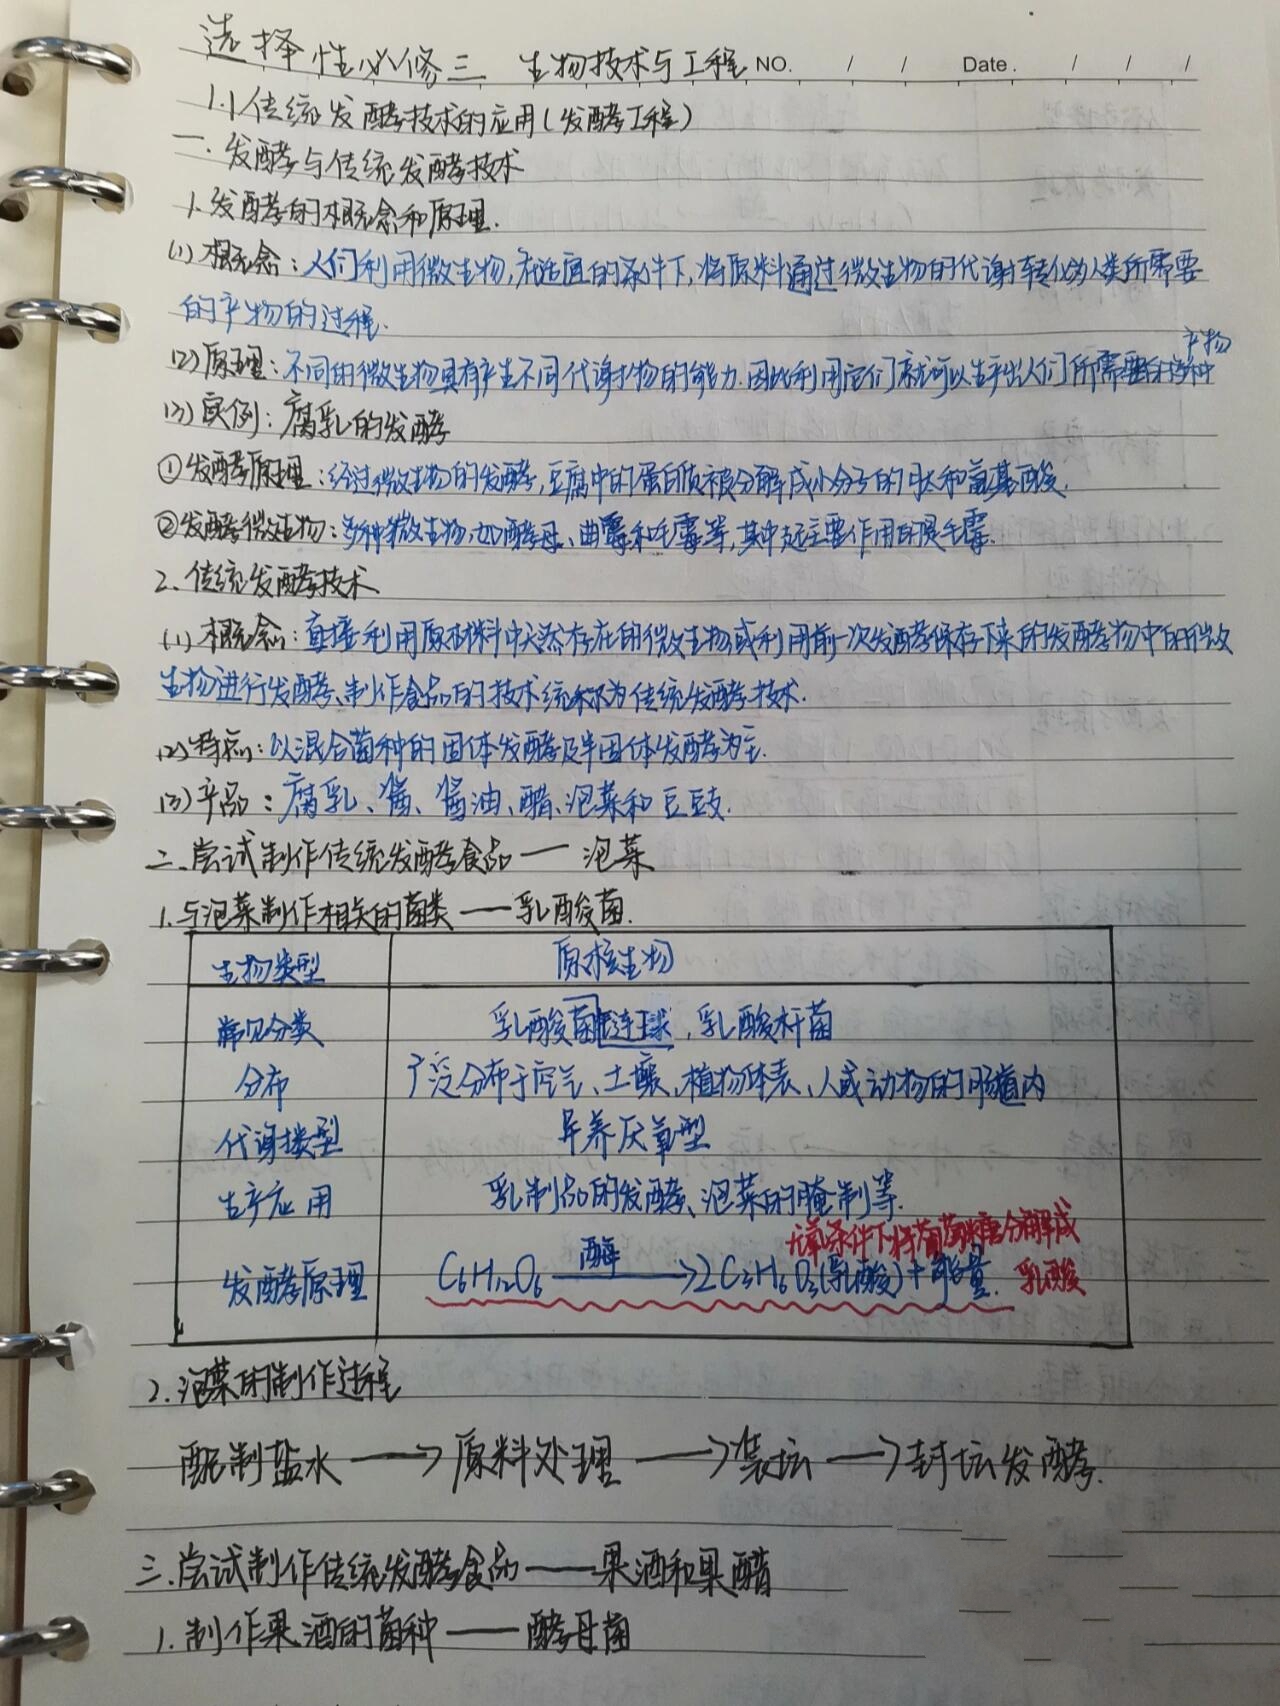 选择性必修三 生物技术与工程 NO. / / Date. / / /
1.1 传统发酵技术的应用(发酵工程)
一.发酵与传统发酵技术
1.发酵的概念和原理.
(1)概念:人们利用微生物,在适宜的条件下,将原料通过微生物的代谢转化为人类所需要
的产物的过程.
产物
(2)原理:不同的微生物具有产生不同代谢物的能力.因此利用它们就可以生产出人们所需要的各种
(3)实例:腐乳的发酵
①发酵原理:经过微生物的发酵,豆腐中的蛋白质被分解成小分子的肽和氨基酸.
②发酵微生物:多种微生物,如酵母、曲霉和毛霉等,其中起主要作用的是毛霉.
2.传统发酵技术
(1)概念:直接利用原材料中天然存在的微生物或利用前一次发酵保存下来的发酵物中的微
生物进行发酵、制作食品的技术统称为传统发酵技术.
(2)特点:以混合菌种的固体发酵及半固体发酵为主.
(3)产品:腐乳、酱、酱油、醋、泡菜和豆豉.
二.尝试制作传统发酵食品——泡菜
1.与泡菜制作相关的菌类——乳酸菌.
生物类型 原核生物
常见分类 乳酸菌链球,乳酸杆菌
分布 广泛分布于空气、土壤、植物体表、人或动物的肠道内
代谢类型 异养厌氧型
生产应用 乳制品的发酵、泡菜的腌制等.
无氧条件下将葡萄糖分解成
发酵原理 C₆H₁₂O₆ 酶→ 2C₃H₆O₃(乳酸)+能量. 乳酸
2.泡菜的制作过程
配制盐水→原料处理→装坛→封坛发酵.
三.尝试制作传统发酵食品——果酒和果醋
1.制作果酒的菌种——酵母菌